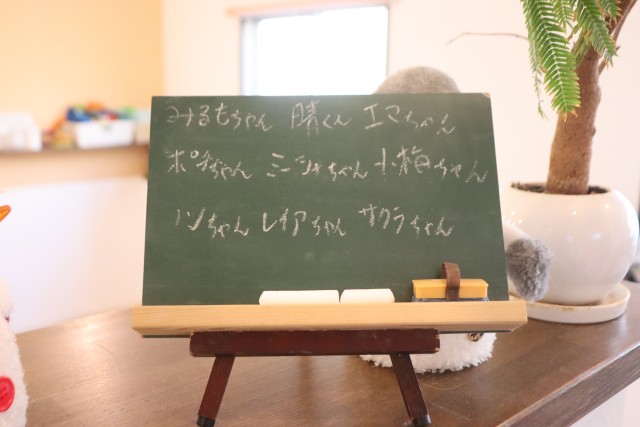 みるもちゃん 晴くん エマちゃん
ポチちゃん ミーシャちゃん 小梅ちゃん
ノンちゃん レイアちゃん サクラちゃん